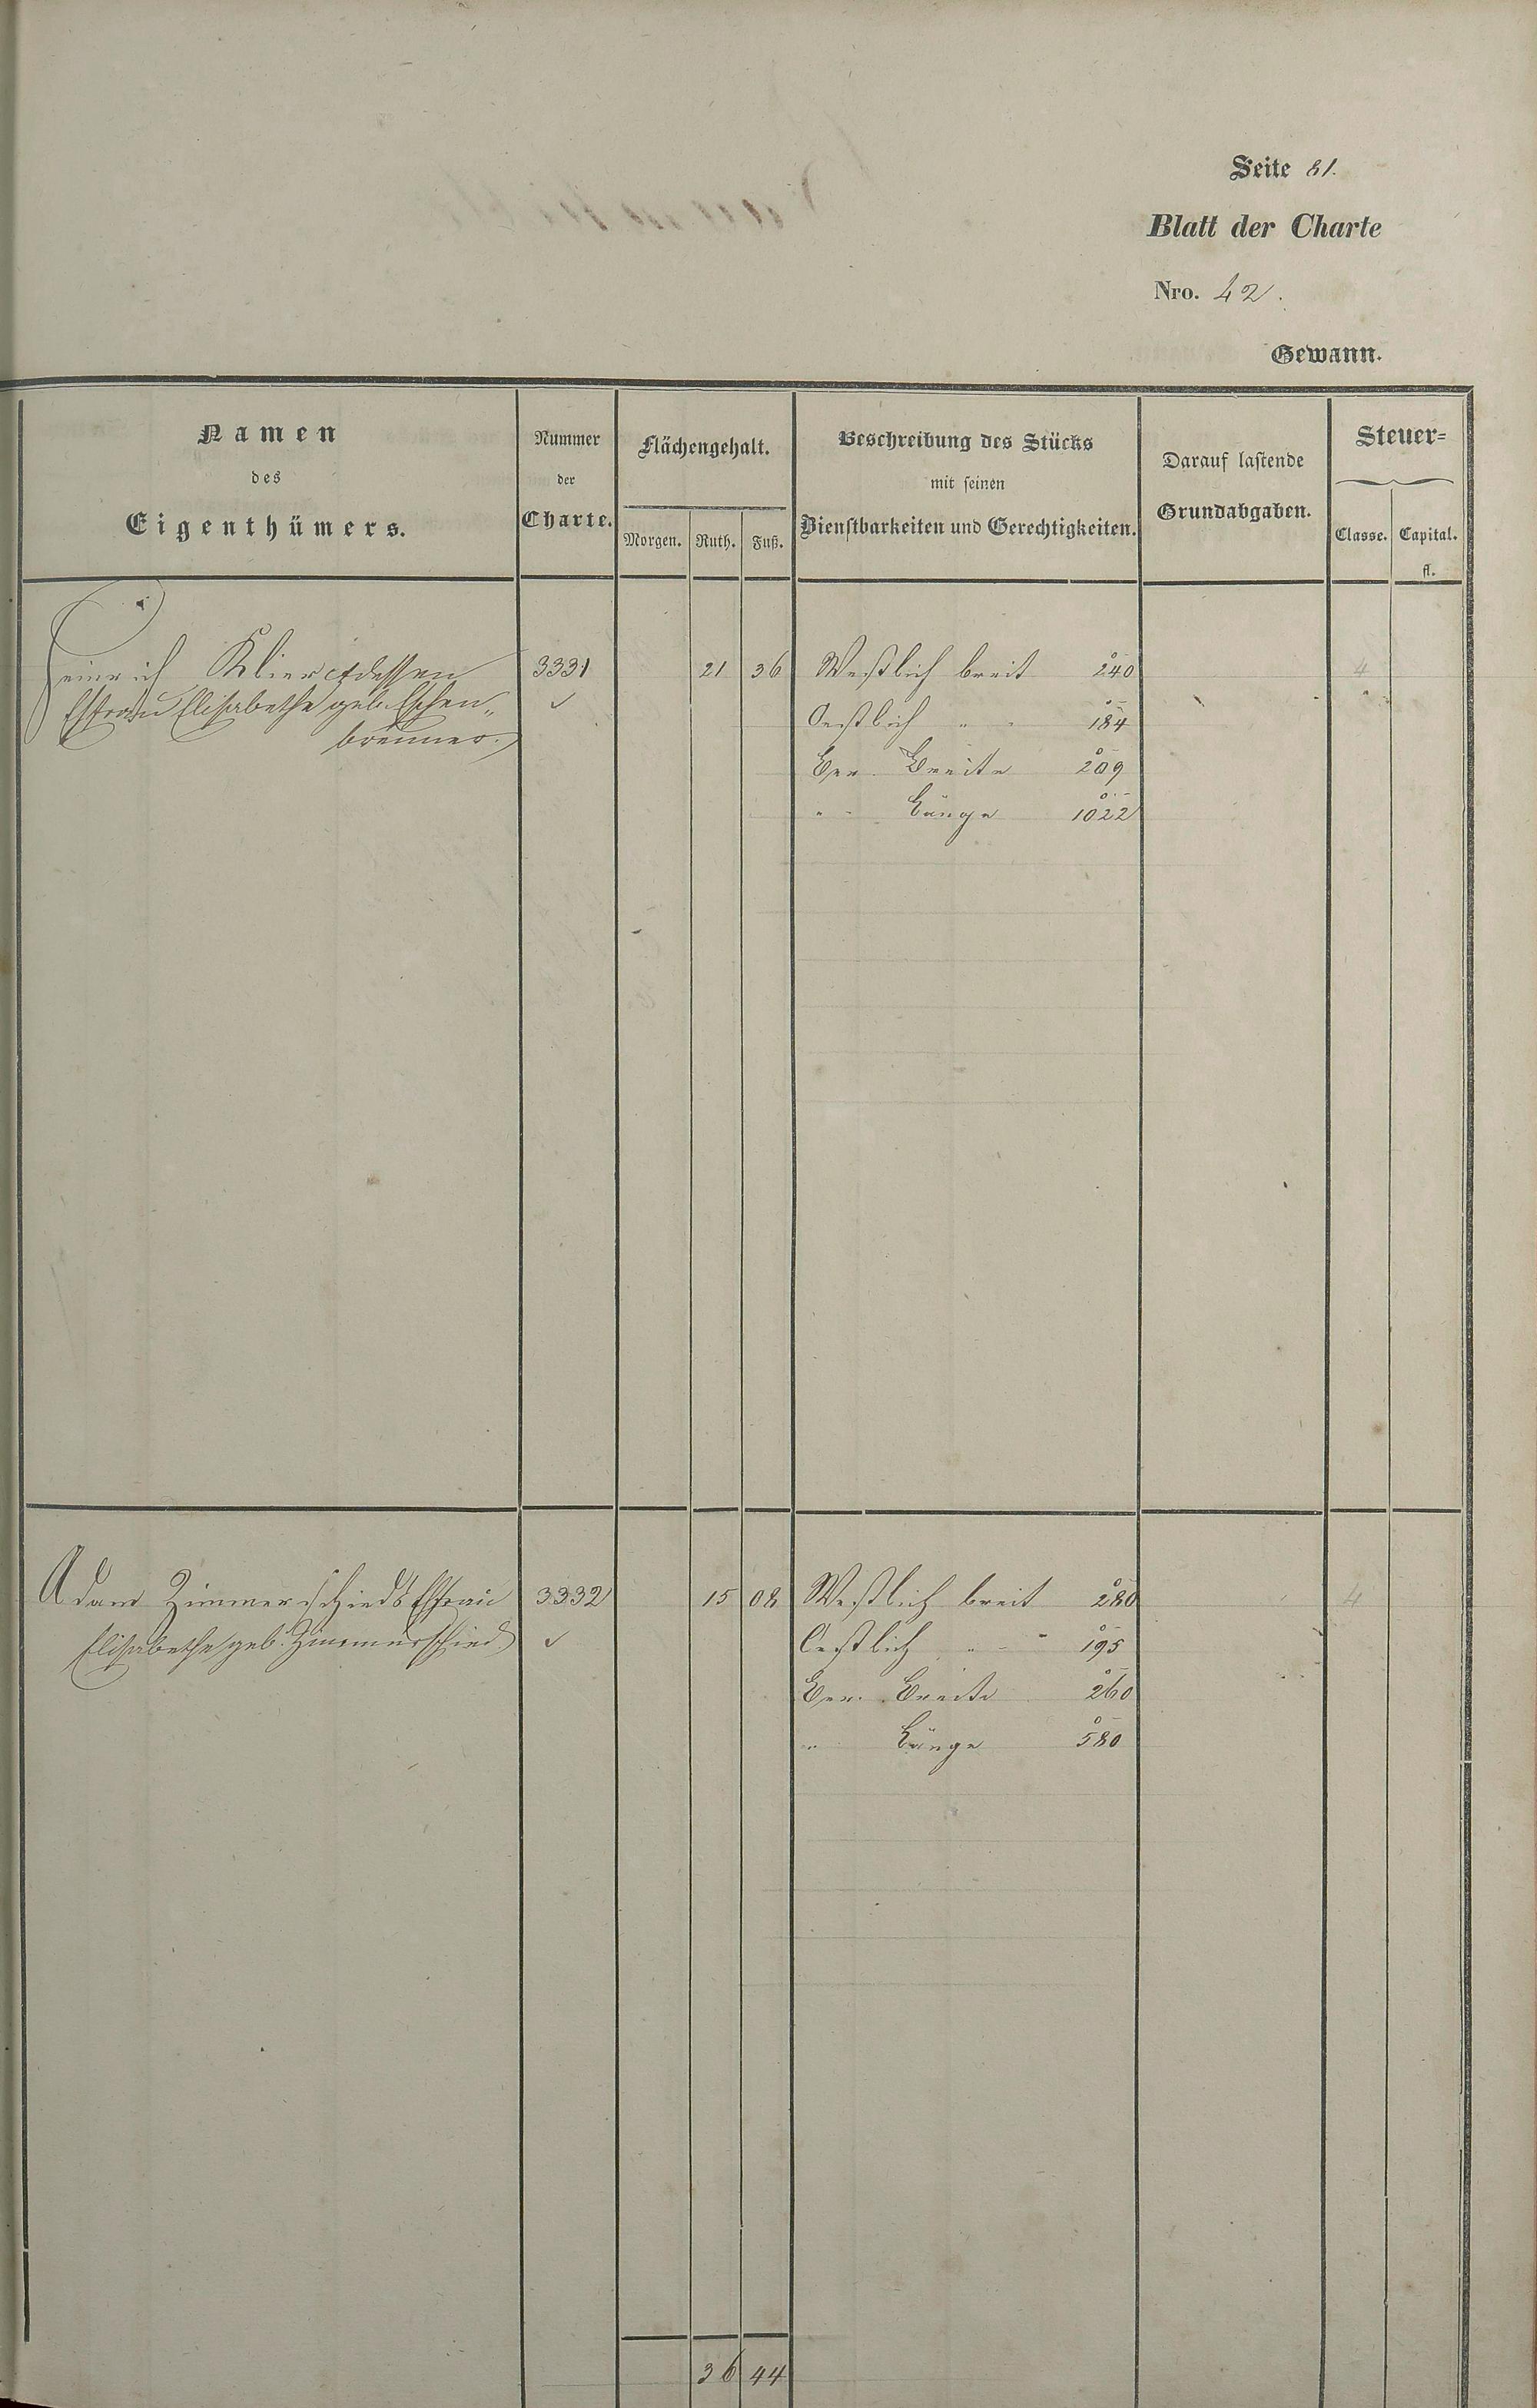 Seite 81.
Blatt der Charte
Nro. 42.
Gewann.
Namen
des
Eigenthümers.
Nummer
der
Charte.
Flächengehalt.
Morgen. Ruth. Fuß.
Beschreibung des Stücks
mit seinen
Dienstbarkeiten und Gerechtigkeiten.
Darauf lastende
Grundabgaben.
Steuer=
Classe. Capital.
fl.
Heinrich Klier et dessen 3331 21 36 Westlich breit 240 4
Ehfrau Elisabethe geb. Eschen„ ✓ Oestlich " " 184
brenner. Ger. Breite 209
" Länge 1022
Adam Zimmerschieds Ehfrau 3332 15 08 Westlich breit 280 4
Elisabethe geb. Zimmerschied ✓ Oestlich " " 195
Ger. Breite 260
" Länge 580
36 44